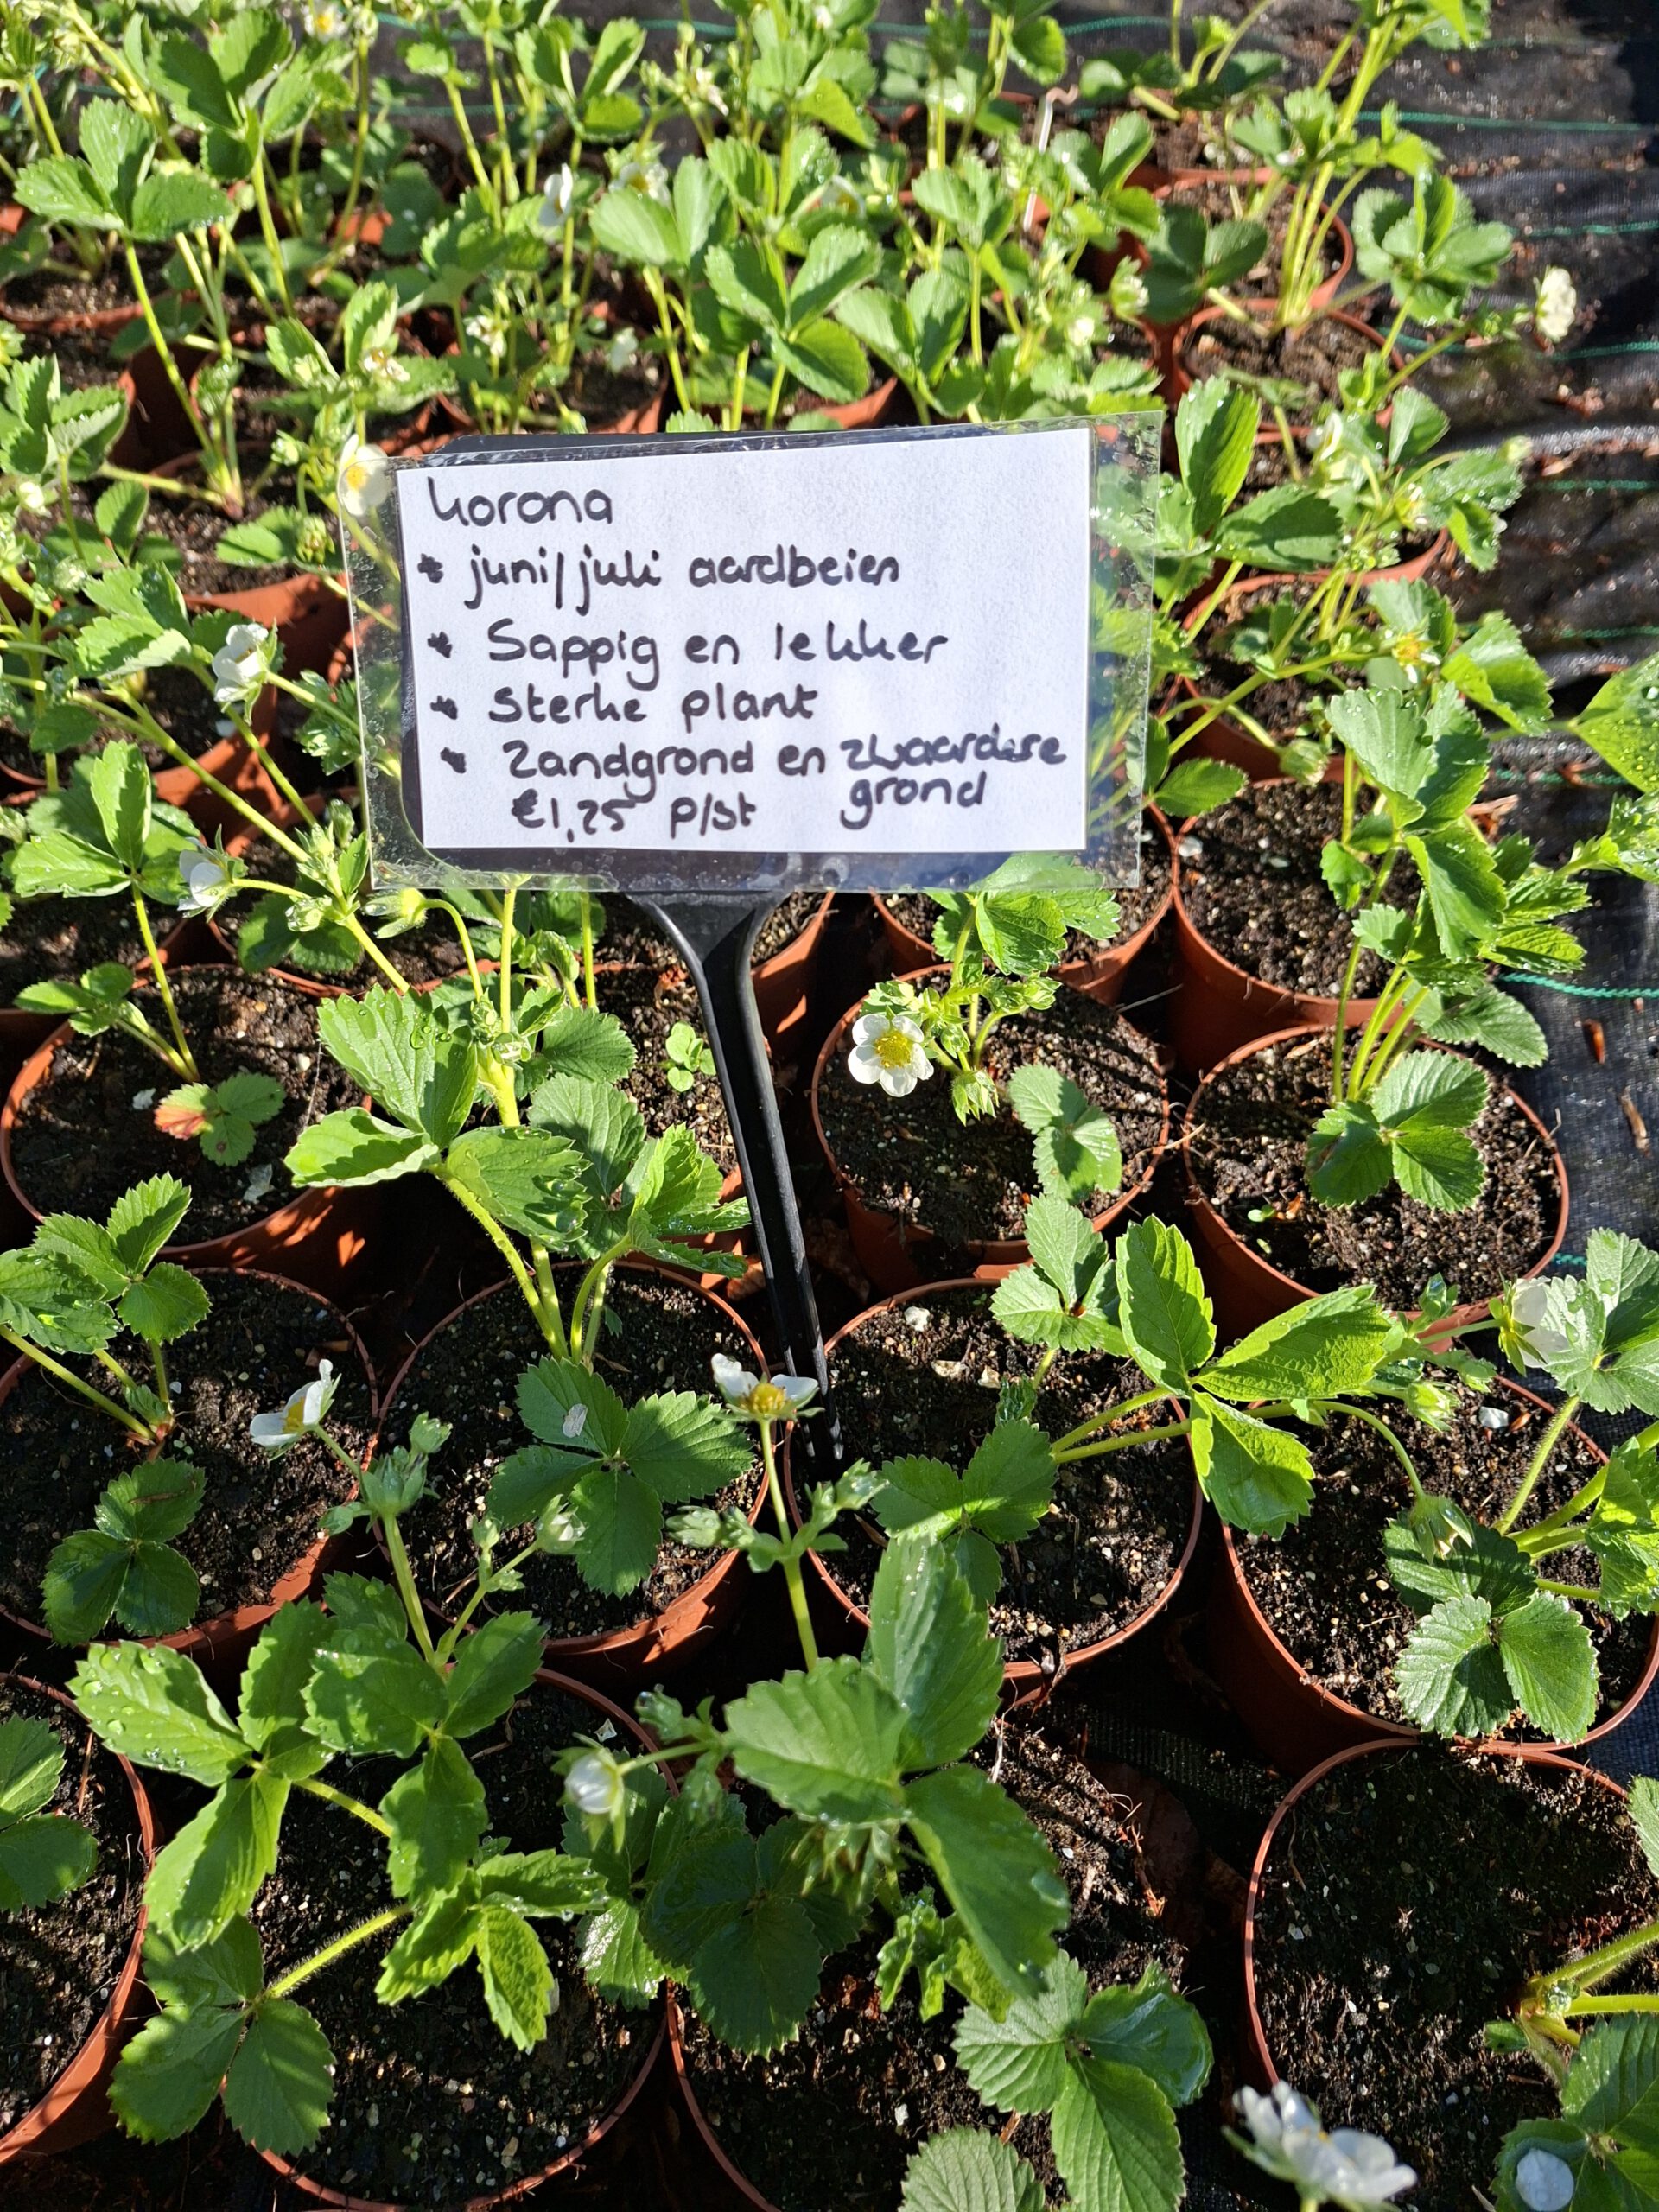 Korona
* juni/juli aardbeien
* Sappig en lekker
* Sterke plant
* Zandgrond en zwaardere
grond
€1,25 p/st